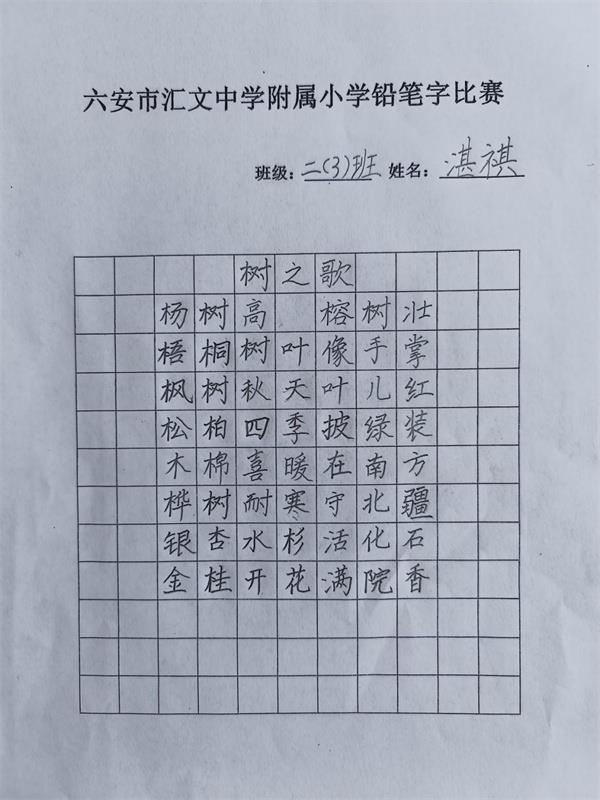 六安市汇文中学附属小学铅笔字比赛
班级：二(3)班 姓名：湛祺
树之歌
杨树高 榕树壮
梧桐树叶像手掌
枫树秋天叶儿红
松柏四季披绿装
木棉喜暖在南方
桦树耐寒守北疆
银杏水杉活化石
金桂开花满院香